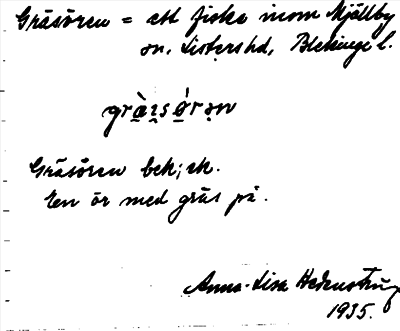 Gräsören = ett fiske inom Mjällby
sn, Listers hd, Blekinge l.
gràisórən
Gräsören bek; ek.
En ör med gräs på.
Anna-Lisa Hedenström
1935.